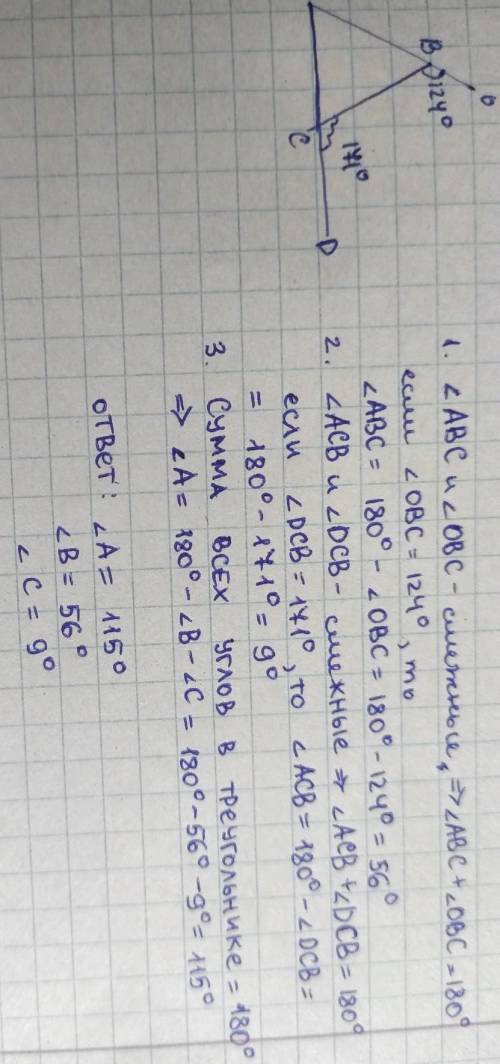 B
O
124°
C
171°
D
1. ∠ABC и ∠OBC - смежные, ⇒ ∠ABC + ∠OBC = 180°
если ∠OBC = 124°, то
∠ABC = 180° - ∠OBC = 180° - 124° = 56°
2. ∠ACB и ∠DCB - смежные ⇒ ∠ACB + ∠DCB = 180°
если ∠DCB = 171°, то ∠ACB = 180° - ∠DCB =
= 180° - 171° = 9°
3. Сумма всех углов в треугольнике = 180°
⇒ ∠A = 180° - ∠B - ∠C = 180° - 56° - 9° = 115°
ответ: ∠A = 115°
∠B = 56°
∠C = 9°